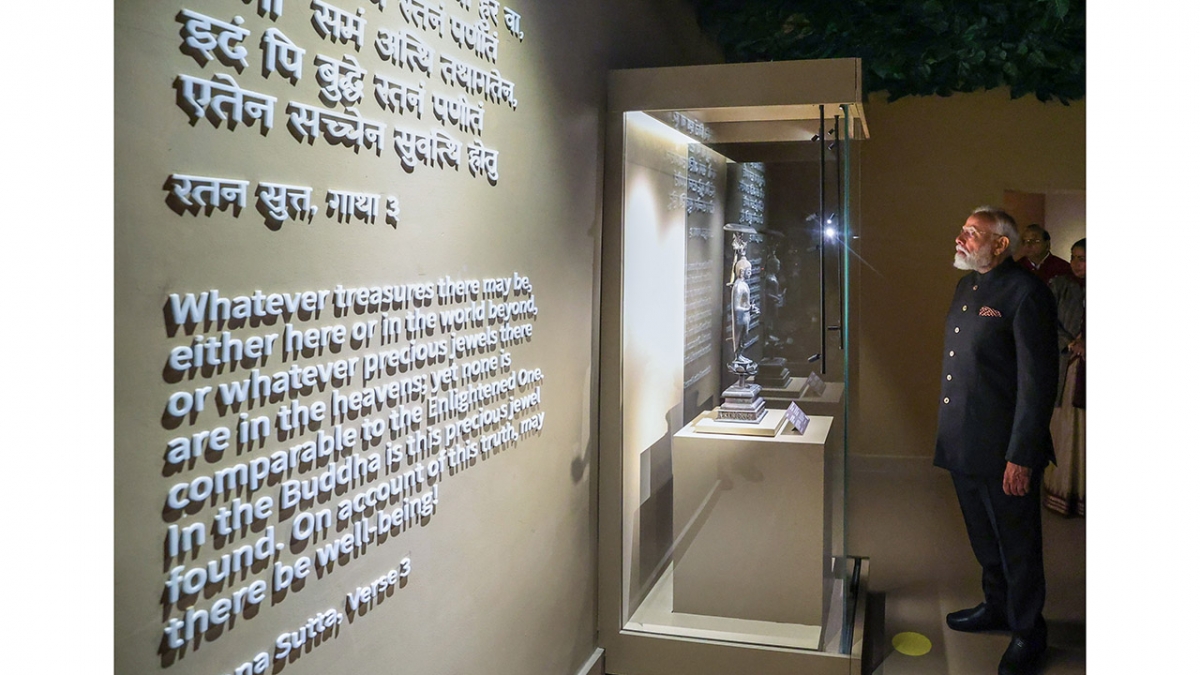 वा,
रतनं पणीतं
समं अत्थि तथागतेन,
इदं पि बुद्धे रतनं पणीतं
एतेन सच्चेन सुवत्थि होतु
रतन सुत्त, गाथा ३
Whatever treasures there may be,
either here or in the world beyond,
or whatever precious jewels there
are in the heavens; yet none is
comparable to the Enlightened One.
In the Buddha is this precious jewel
found. On account of this truth, may
there be well-being!
na Sutta, Verse 3